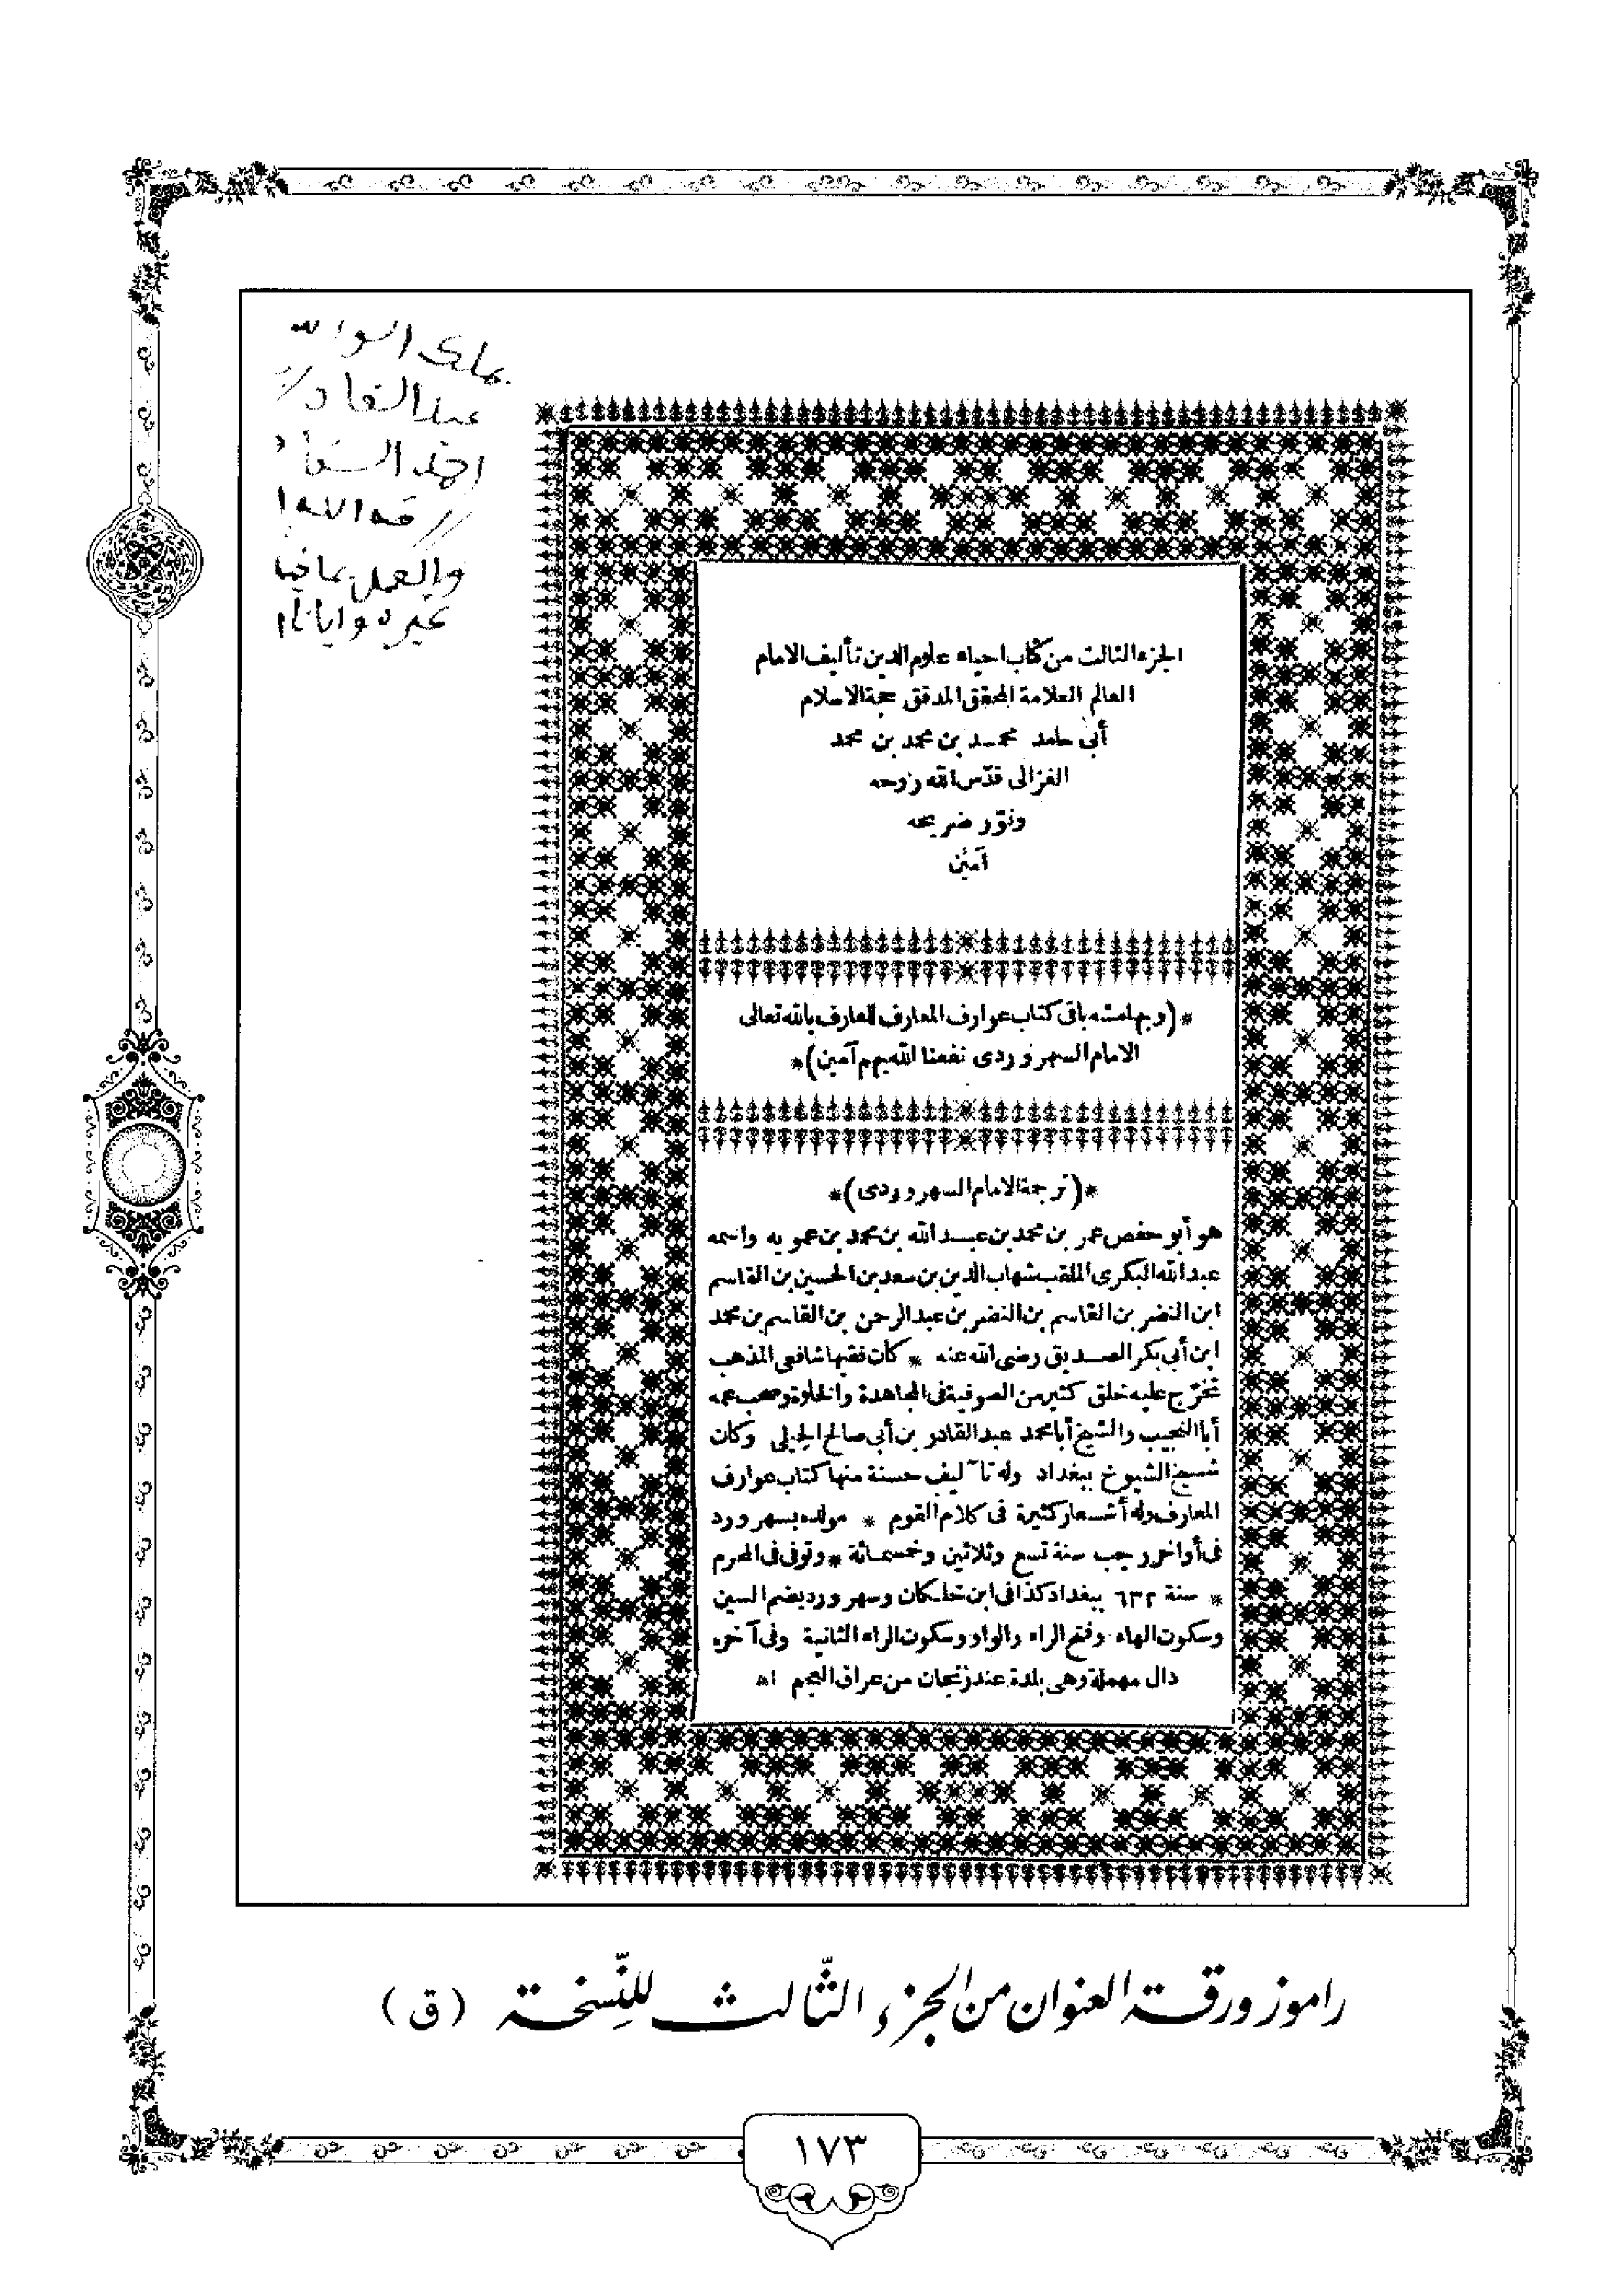 عبد القادر
احمد السقاف
والعمل بما فيه
الجزء الثالث من كتاب احياء علوم الدين تأليف الامام
العالم العلامة المحقق المدقق حجة الاسلام
أبى حامد محمد بن محمد بن محمد
الغزالى قدّس الله روحه
ونوّر ضريحه
آمين
*(وبهامشه باقى كتاب عوارف المعارف للعارف بالله تعالى
الامام السهروردى نفعنا الله بهم آمين)*
*(ترجمة الامام السهروردى)*
هو أبو حفص عمر بن محمد بن عبد الله بن محمد بن عمويه واسمه
عبد الله البكرى الملقب شهاب الدين بن سعد بن الحسين بن القاسم
ابن النضر بن القاسم بن النضر بن عبد الرحمن بن القاسم بن محمد
ابن أبى بكر الصديق رضى الله عنه * كان فقيها شافعى المذهب
تخرّج عليه خلق كثير من الصوفية فى المجاهدة والخلوة وصحب عمه
أبا النجيب والشيخ أبا محمد عبد القادر بن أبى صالح الجيلى وكان
شيخ الشيوخ ببغداد وله تآليف حسنة منها كتاب عوارف
المعارف وله أشعار كثيرة فى كلام القوم * مولده بسهرورد
فى أواخر رجب سنة تسع وثلاثين وخمسمائة * وتوفى فى المحرم
* سنة ٦٣٢ ببغداد كذا فى ابن خلكان وسهرورد بضم السين
وسكون الهاء وفتح الراء والواو وسكون الراء الثانية وفى آخره
دال مهملة وهى بلدة عند زنجان من عراق العجم اه
راموز ورقة العنوان من الجزء الثّالث للنّسخة (ق)
١٧٣